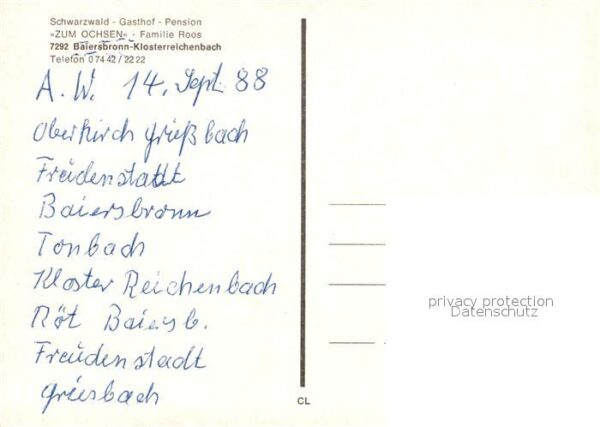 Schwarzwald - Gasthof - Pension
»ZUM OCHSEN« · Familie Roos
7292 Baiersbronn-Klosterreichenbach
Telefon 0 74 42 / 22 22
A.W. 14. Sept. 88
Oberkirch Grießbach
Freüdenstadt
Baiersbronn
Tonbach
Kloster Reichenbach
Röt Baiersb.
Freüdenstadt
Griesbach
CL
privacy protection
Datenschutz